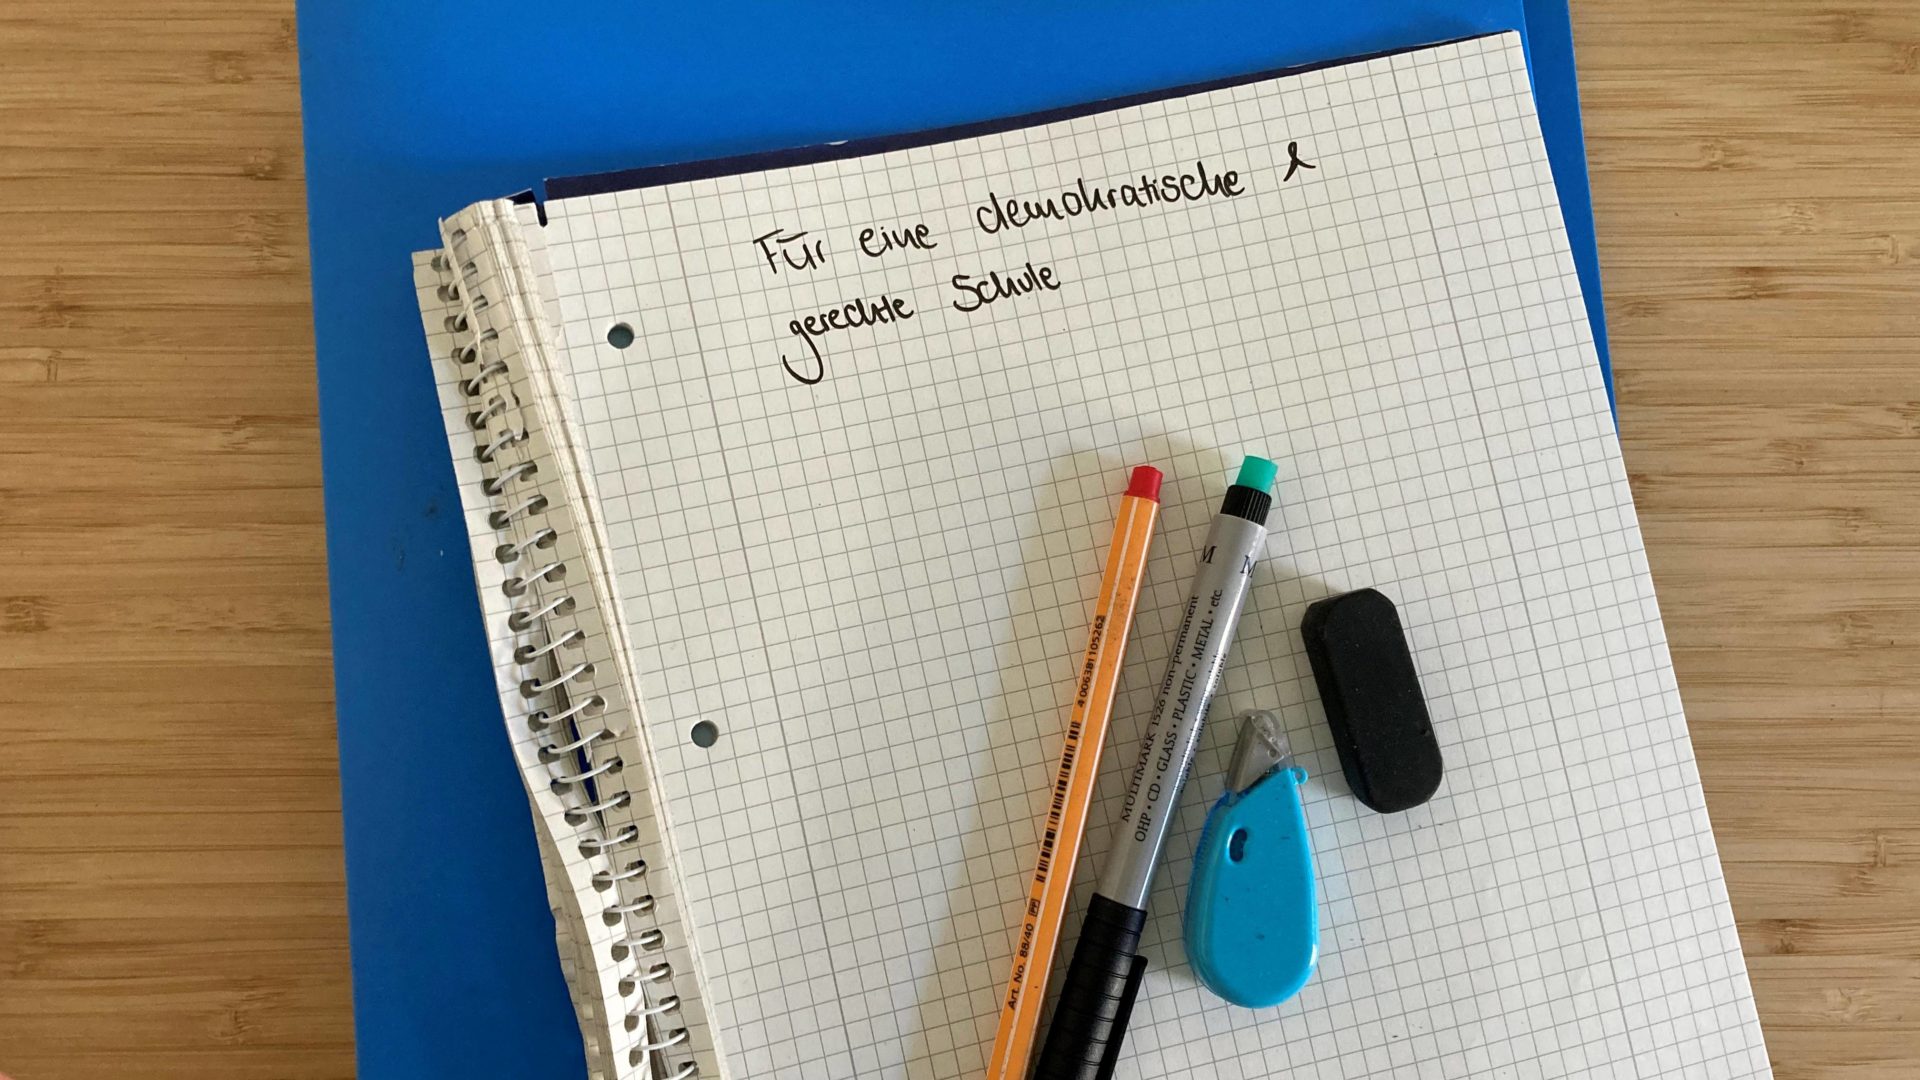 Für eine demokratische &
gerechte Schule
4 006381 105262
Art. No. 88/40 PP
M M
MULTIMARK 1526 non-permanent
OHP • CD • GLASS • PLASTIC • METAL • etc